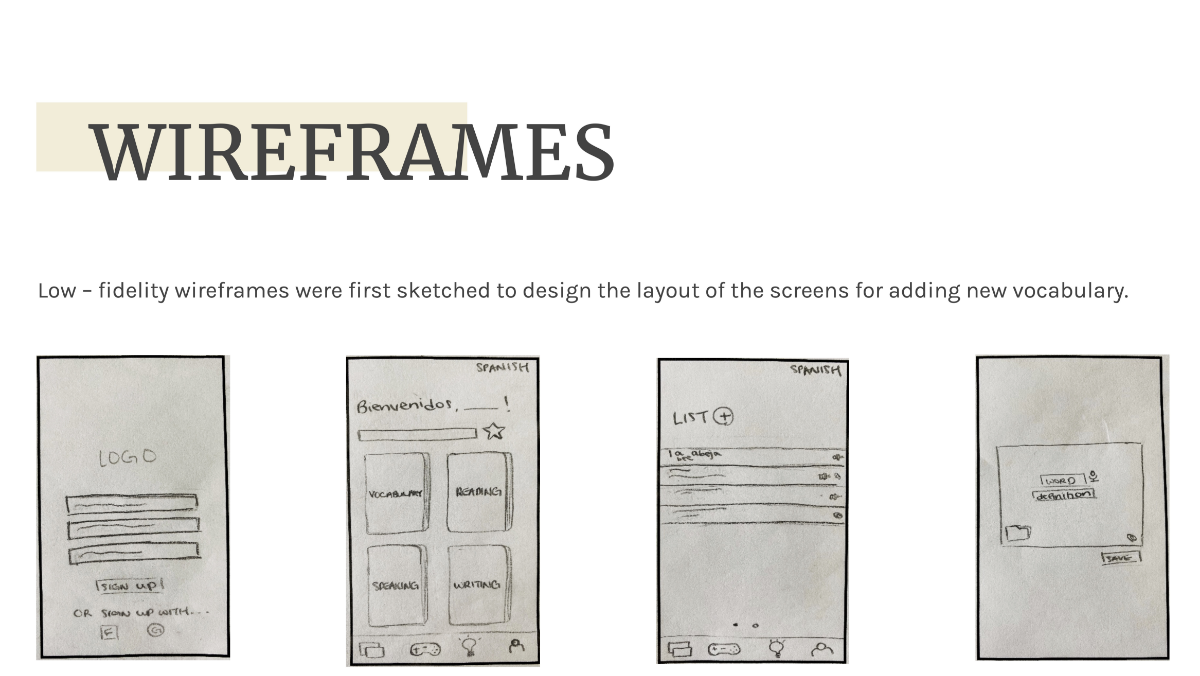 WIREFRAMES
Low – fidelity wireframes were first sketched to design the layout of the screens for adding new vocabulary.
LOGO
SIGN UP
OR SIGN UP WITH...
F
G
SPANISH
Bienvenidos, ___ !
VOCABULARY
READING
SPEAKING
WRITING
SPANISH
LIST +
la abeja
bee
WORD
definition
SAVE